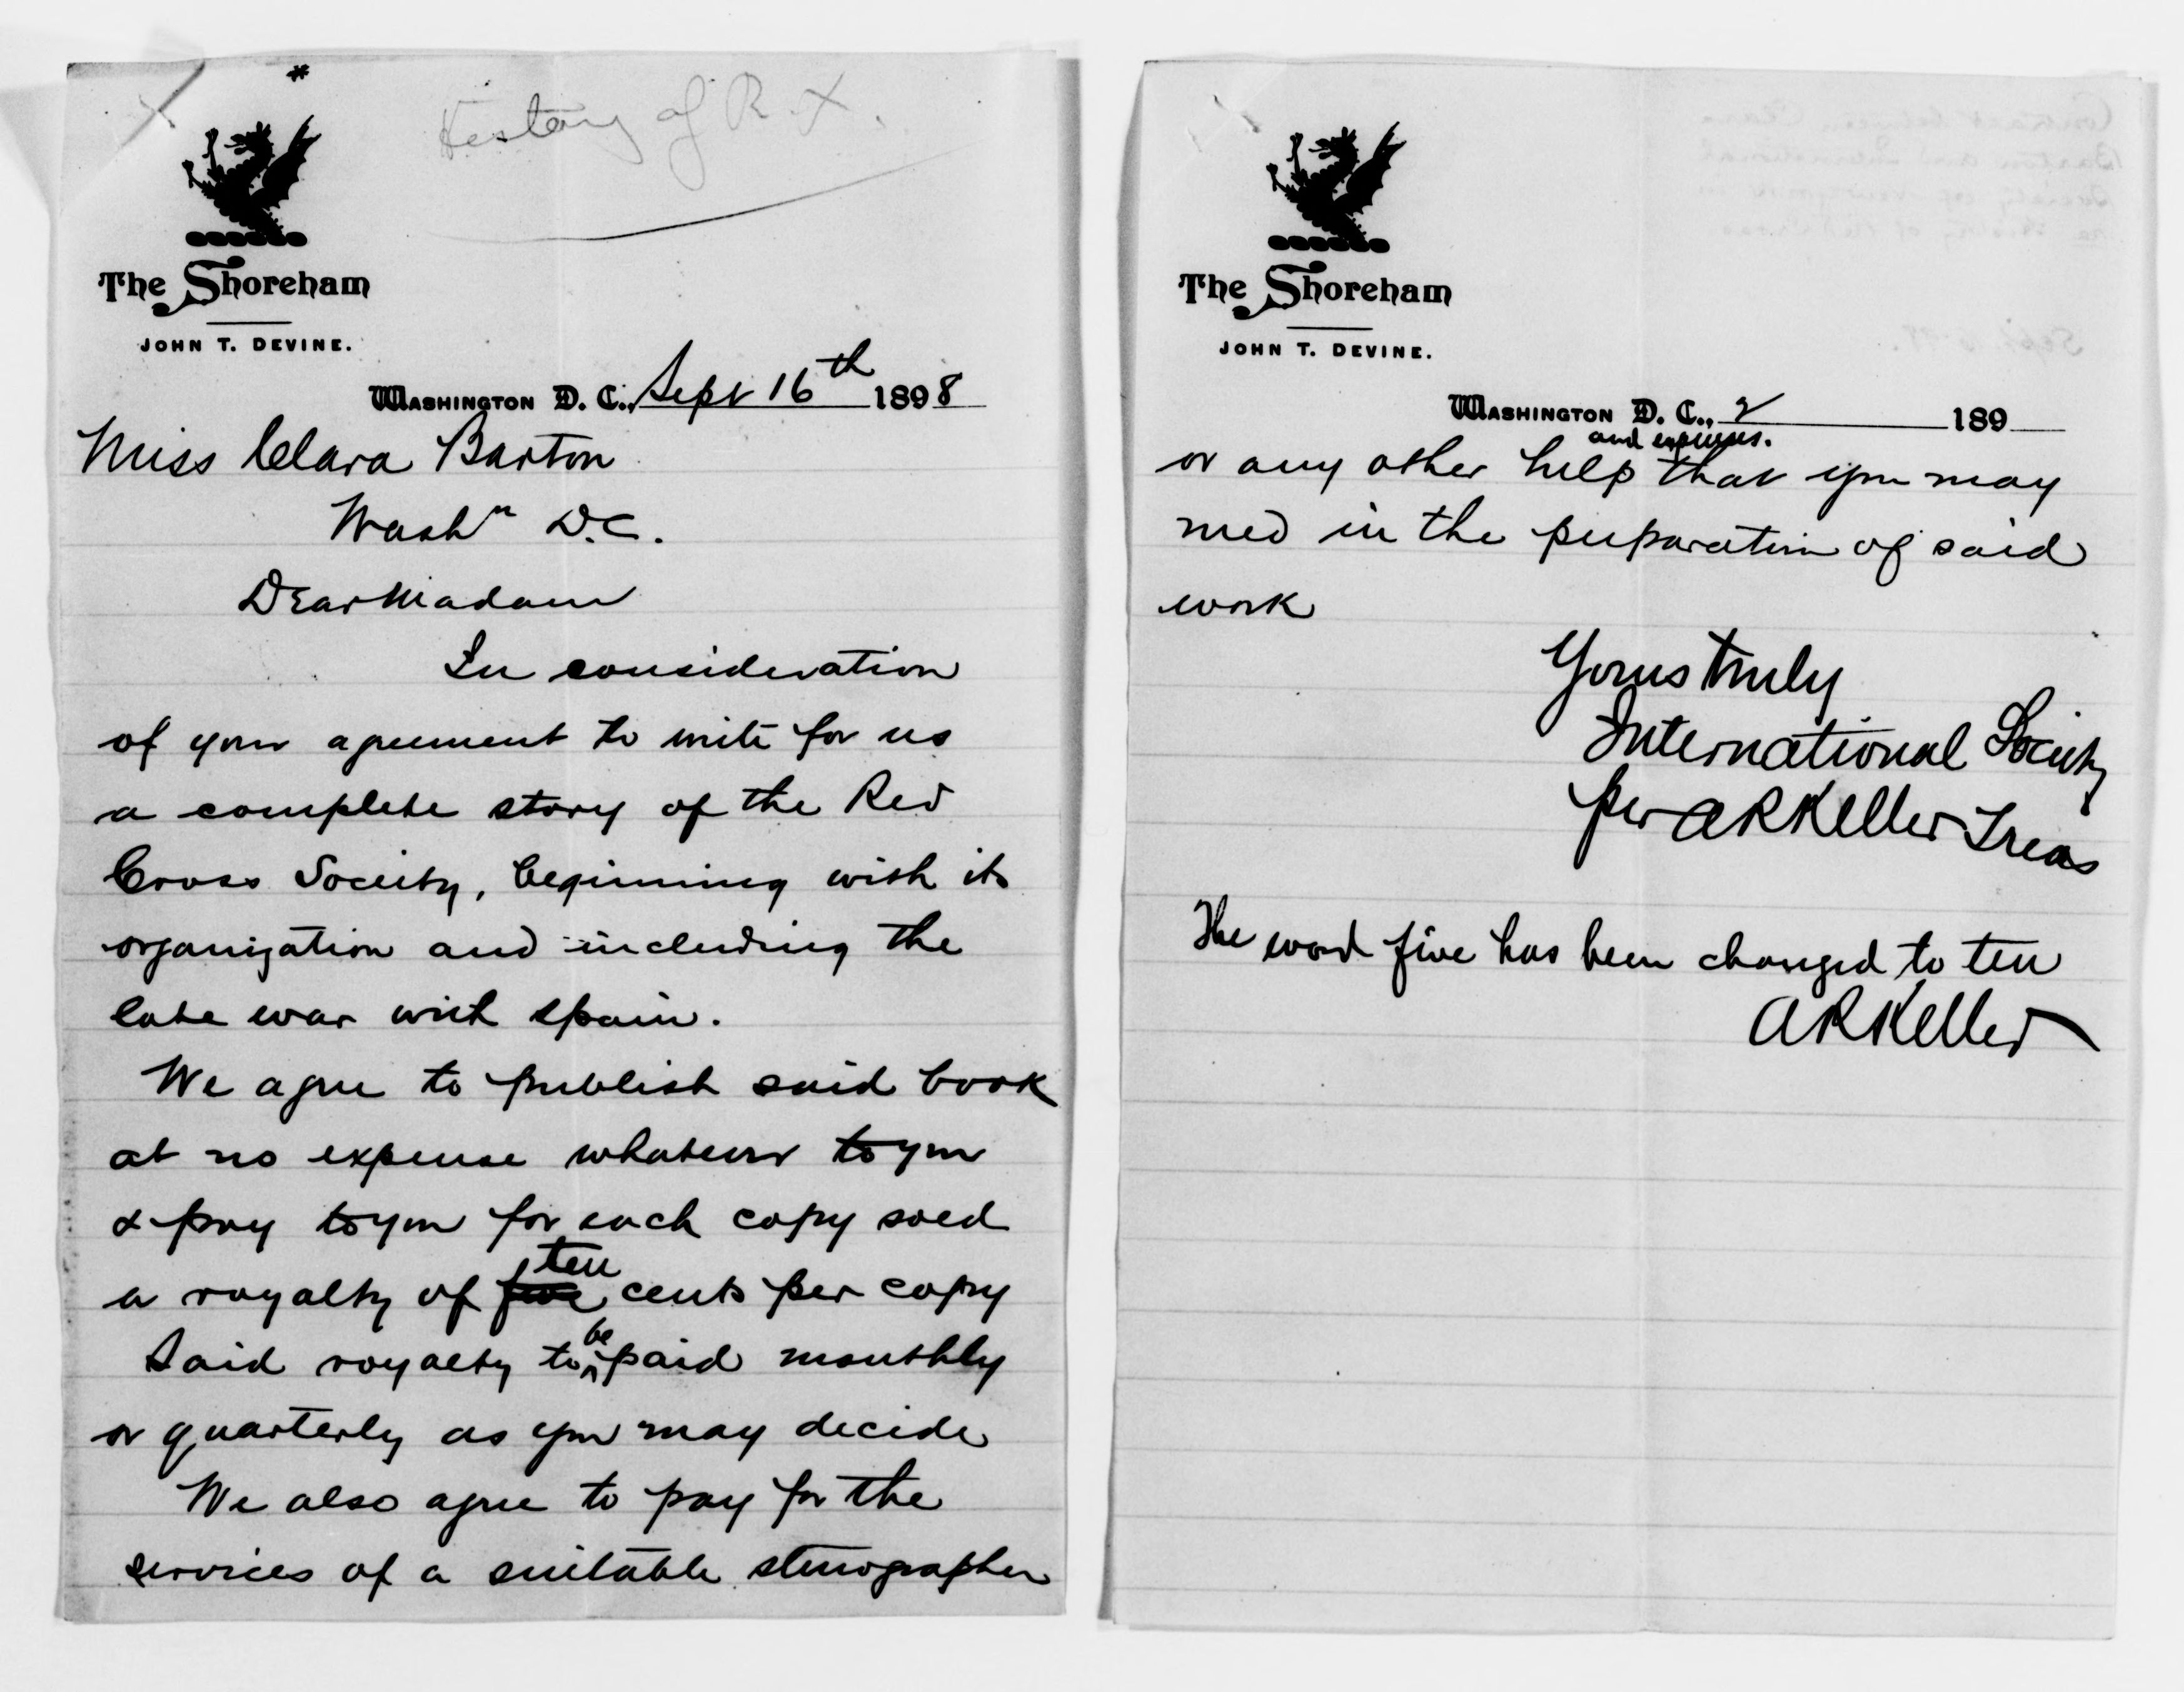 History of R. X.
The Shoreham
JOHN T. DEVINE.
WASHINGTON D. C., Sept 16th 1898
Miss Clara Barton
Washn D.C.
Dear Madam
In consideration
of your agreement to write for us
a complete story of the Red
Cross Society, beginning with its
organization and including the
late war with Spain.
We agree to publish said book
at no expense whatever to you
& pay to you for each copy sold
a royalty of five ten cents per copy
Said royalty to be paid monthly
or quarterly as you may decide
We also agree to pay for the
services of a suitable stenographer
The Shoreham
JOHN T. DEVINE.
WASHINGTON D. C., 2 189
and expenses.
or any other help that you may
need in the preparation of said
work
Yours truly
International Society
per A R Keller Treas
The word five has been changed to ten
A R Keller
Contract between Clara
Barton and International
Society of New York
re History of Red Cross